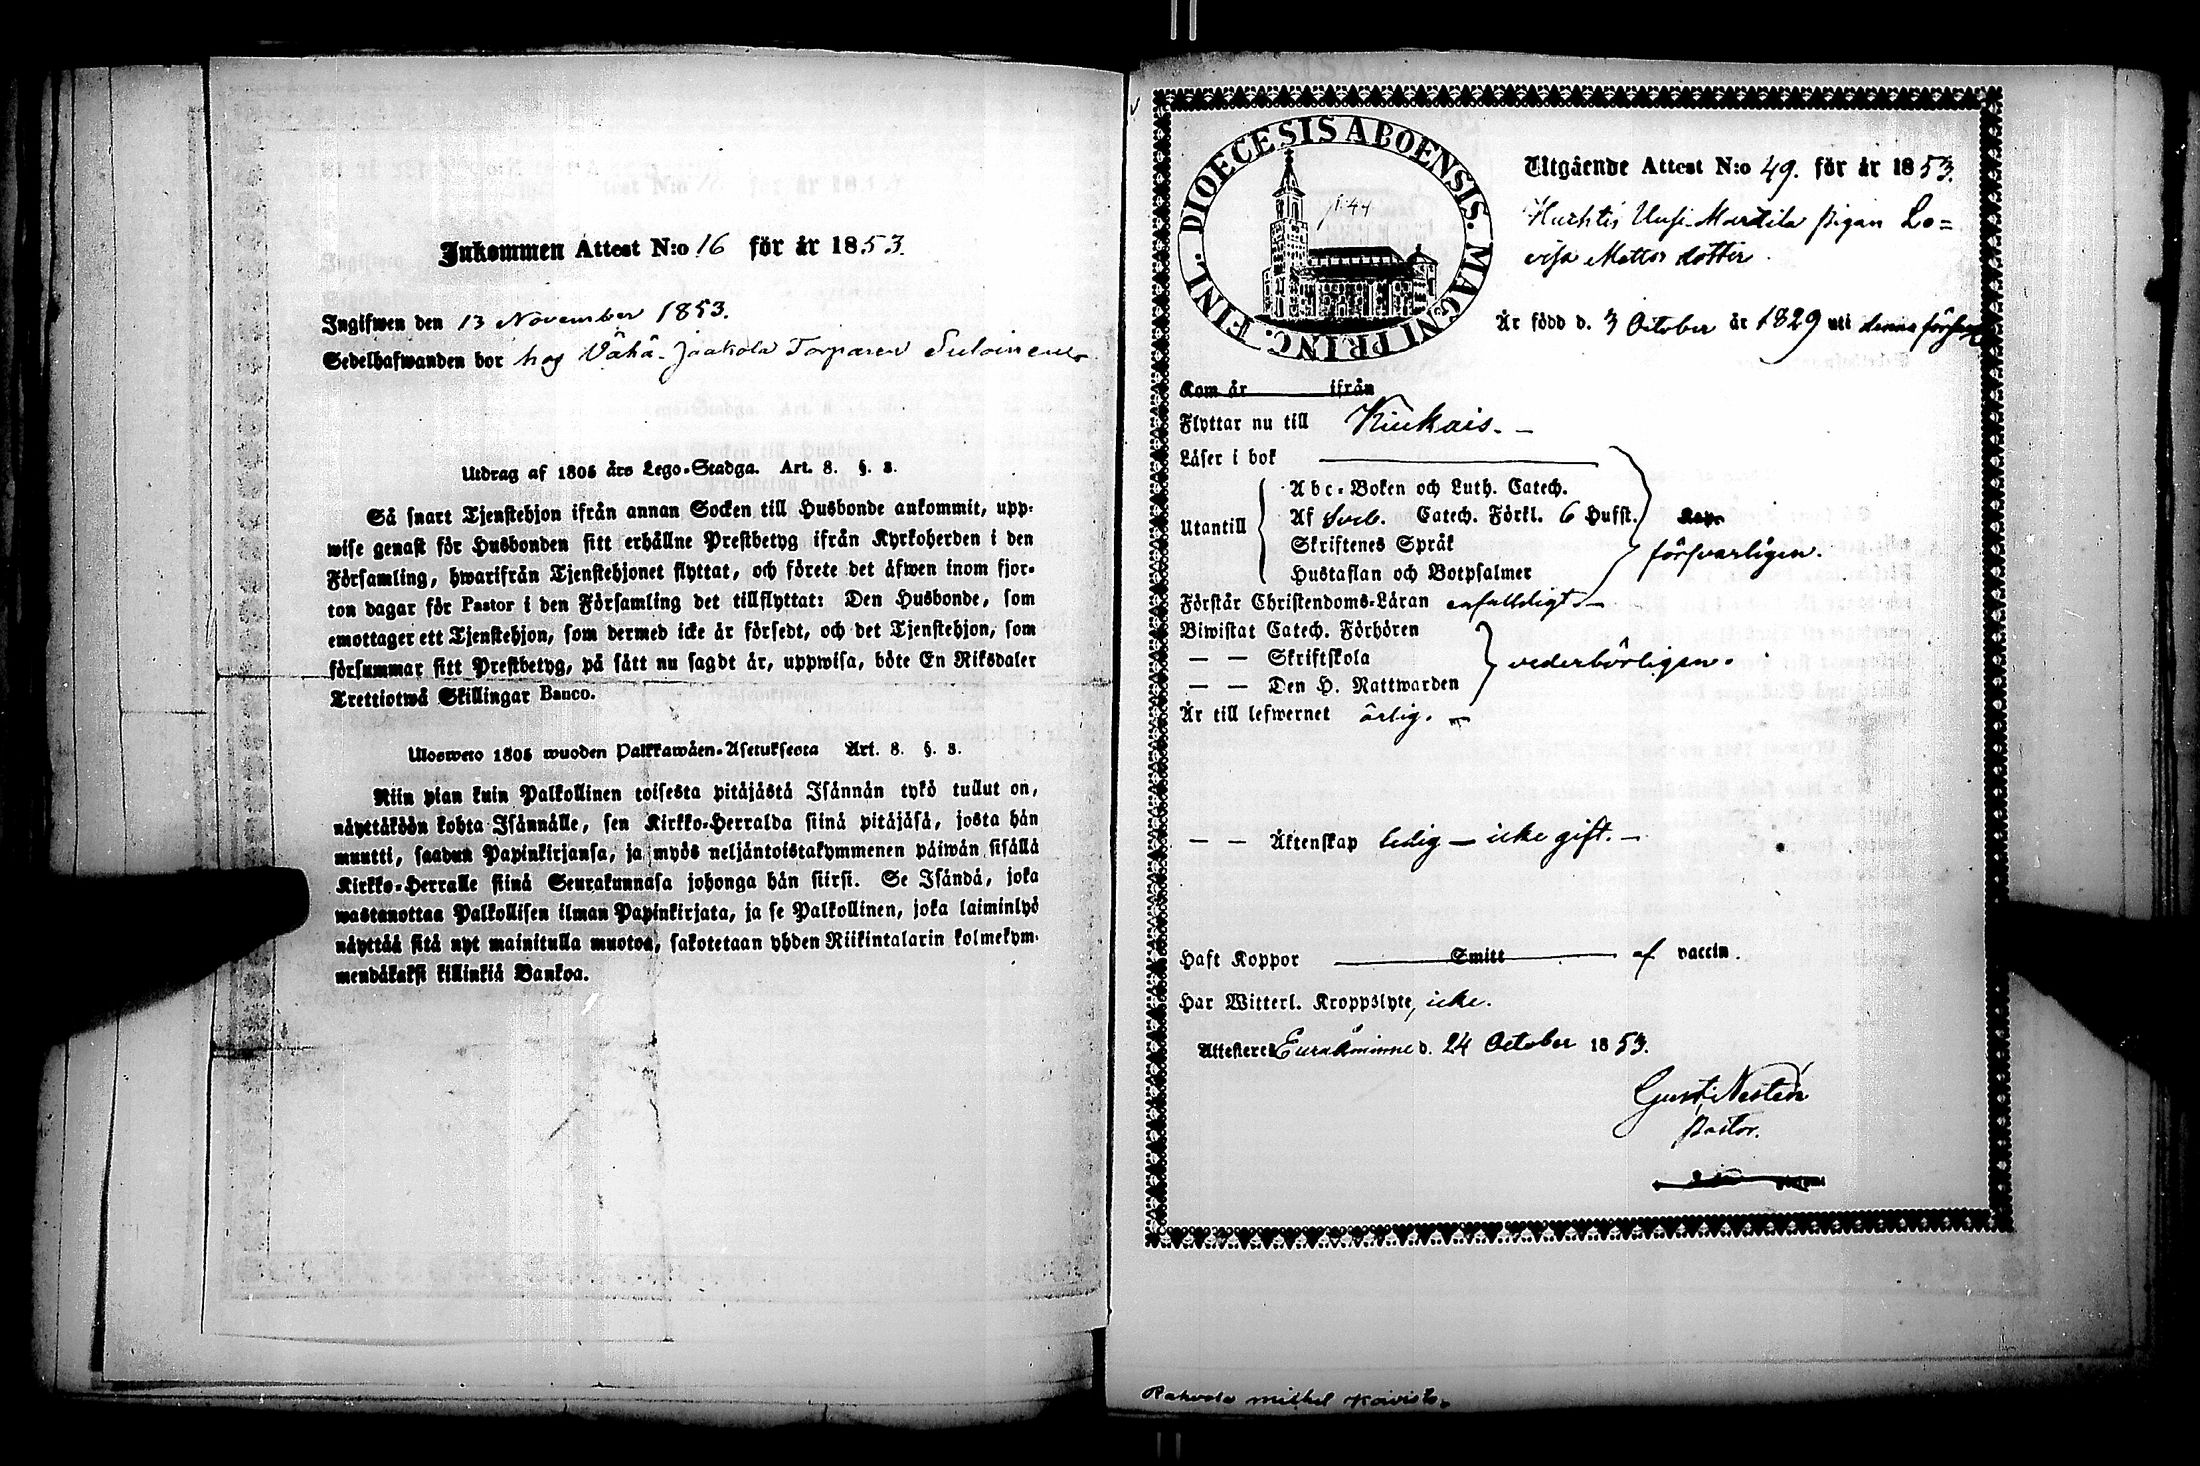 Inkommen Attest N:o 16 för år 1853.
Ingifwen den 13 November 1853.
Sedelhafwanden bor hos Vähä-Jaakola Torparen
Utdrag af 1805 års Lego-Stadga. Art. 8. §. 3.
Så snart Tjenstehjon ifrån annan Socken till Husbonde ankommit, upp-
wise genast för Husbonden sitt erhållne Prestbetyg ifrån Kyrkoherden i den
Församling, hwarifrån Tjenstehjonet flyttat, och förete det äfwen inom fjor-
ton dagar för Pastor i den Församling det tillflyttat: Den Husbonde, som
emottager ett Tjenstehjon, som dermed icke är försedt, och det Tjenstehjon, som
försummar sitt Prestbetyg, på sätt nu sagdt är, uppwisa, böte En Riksdaler
Trettiotwå Skillingar Banco.
Uloswето 1805 wuoden Palkkawäen-Asetuksesta Art. 8. §. 3.
Niin pian kuin Palkollinen toisesta pitäjästä Isännän tykö tullut on,
näyttäköön kohta Isännälle, sen Kirkko-Herralda siinä pitäjäsä, josta hän
muutti, saadun Papinkirjansa, ja myös neljäntoistakymmenen päiwän sisällä
Kirkko-Herralle siinä Seurakunnasa johonga hän siirsi. Se Isändä, joka
wastanottaa Palkollisen ilman Papinkirjata, ja se Palkollinen, joka laiminlyö
näyttää sitä nyt mainitulla muotoa, sakotetaan yhden Riikintalarin kolmekym-
mendäkaksi killinkiä Bankoa.
DIOECESIS ABOENSIS. MAGNI PRINC. FINL.
Utgående Attest N:o 49. för år 1853.
Huhtis Uusi-Martila pigan Lo=
visa Mattsdotter.
Är född d. 3 October år 1829 uti denna förs
Kom år ifrån
Flyttar nu till Kiukais.
Läser i bok
Utantill
Abc-Boken och Luth. Catech.
Af Sveb. Catech. Förkl. 6 Hufst.
Skriftenes Språk
Hustaflan och Botpsalmer
försvarligen.
Förstår Christendoms-Läran enfaldigt.
Biwistat Catech. Förhören
— — Skriftskola
— — Den H. Nattwarden
vederbörligen.
Är till lefwernet ärlig.
— — Äktenskap ledig — icke gift. —
Haft Koppor Smitt af vaccin.
Har Witterl. Kroppslyte, icke.
Attesterer Euraåminne d. 24 October 1853.
Gust. Nestler
Pastor.